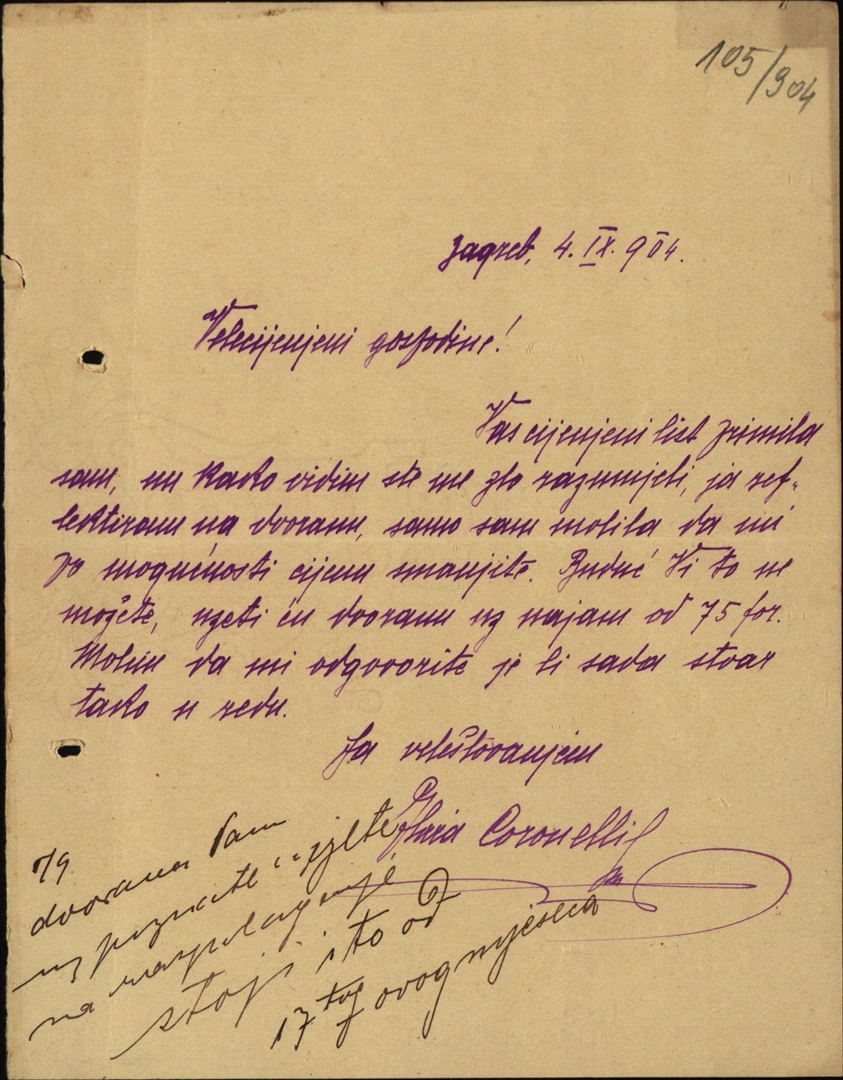 105/904
Zagreb, 4. IX. 904.
Velecijenjeni gospodine!
Vas cijenjeni list primila
sam, nu kako vidim ste me zlo razumjeli, ja ref-
lektiram na dvoranu, samo sam molila da mi
po mogućnosti cijenu smanjite. Buduć Vi to ne
možete, uzeti ću dvoranu uz najam od 75 for.
Molim da mi odgovorite je li sada stvar
tako u redu.
Sa veleštovanjem
Coronelli
7/9
dvorana Vam
uz poznate uvjete
na raspolaganje
stoji i to od
17 tog ovog mjeseca